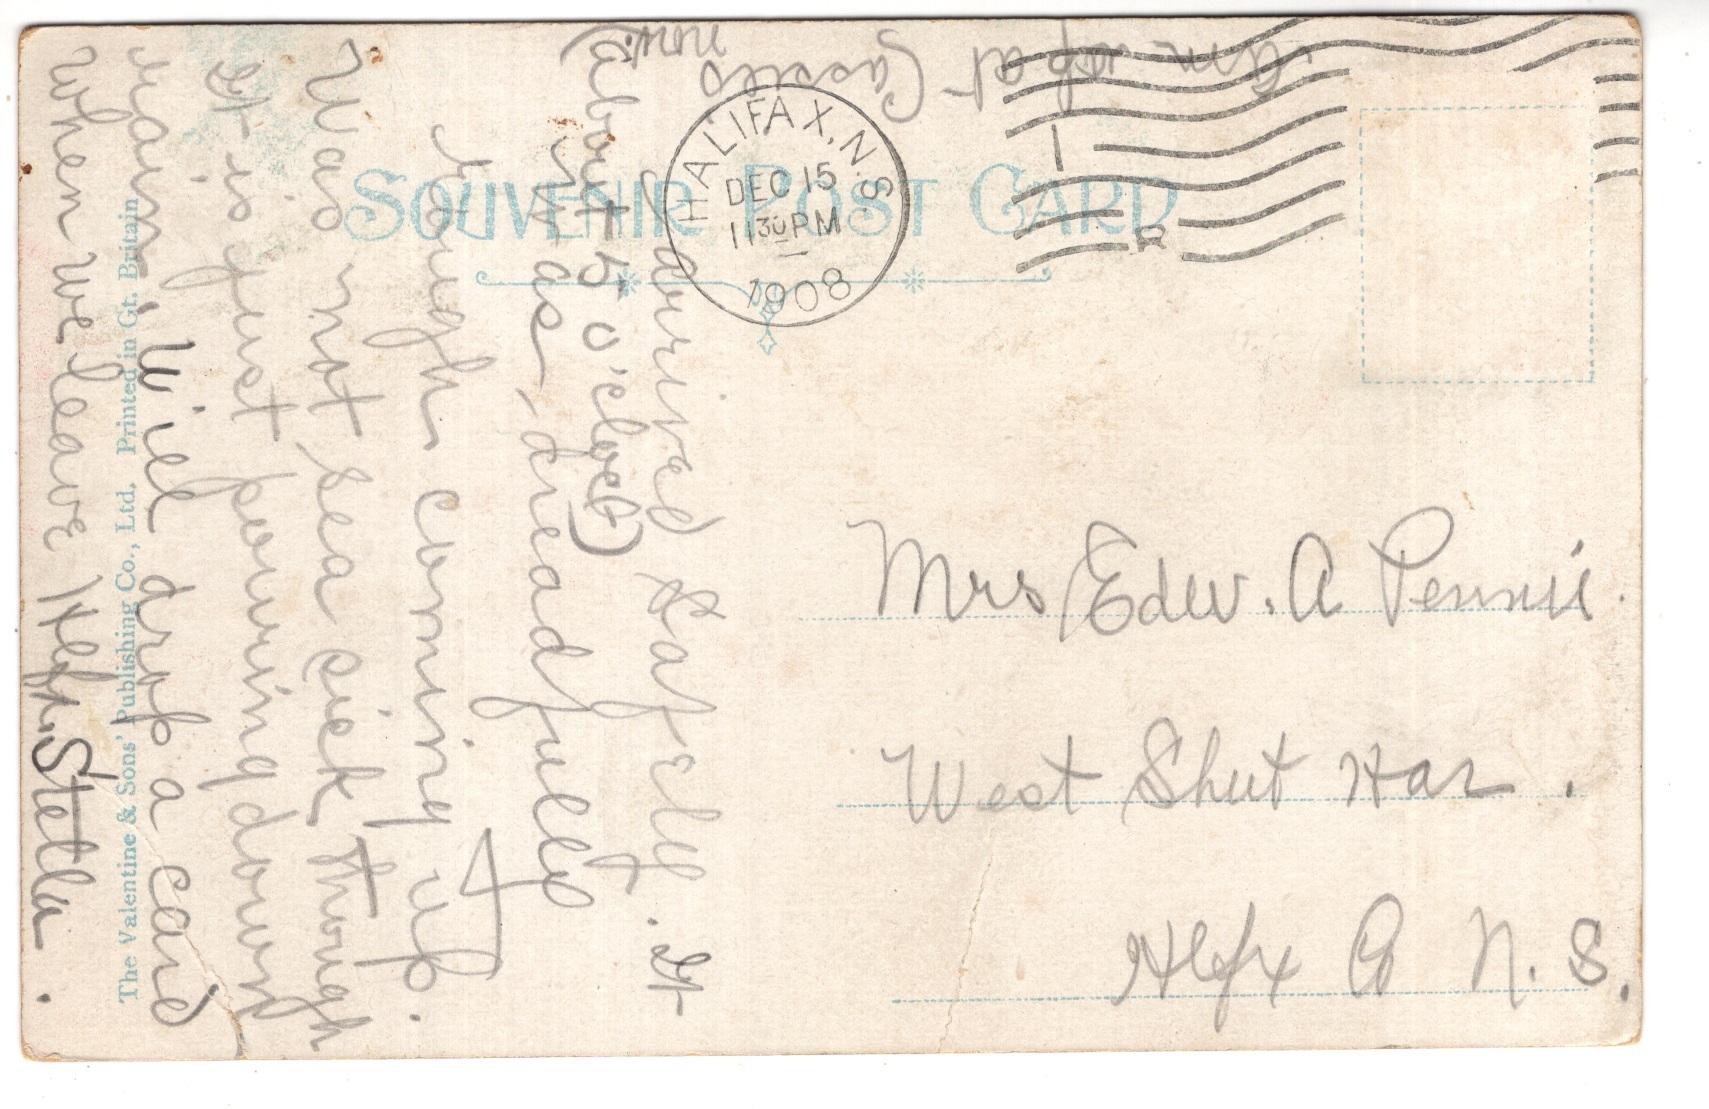 SOUVENIR POST CARD
HALIFAX, N.S.
DEC 15
11 30 PM
1908
Mrs Edw. A Pennie
West Shut Har.
Hlfx Co N. S.
arrived safely. It
(about 5 o'clock)
was dreadfully
rough coming up. I
was not sea sick though
It is just pouring down
rain. Will drop a card
when we leave Hlfx. Stella.
am up at Cassies
now.
The Valentine & Sons' Publishing Co., Ltd. Printed in Gt. Britain